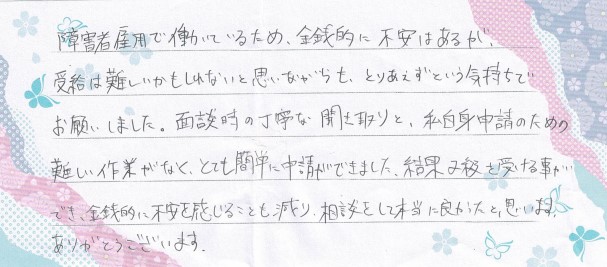 障害者雇用で働いているため、金銭的に不安はあるが、
受給は難しいかもしれないと思いながらも、とりあえずという気持ちで
お願いしました。面談時の丁寧な聞き取りと、私自身申請のための
難しい作業がなく、とても簡単に申請ができました。結果2級を受ける事が
でき、金銭的に不安を感じることも減り、相談をして本当に良かったと思います。
ありがとうございます。